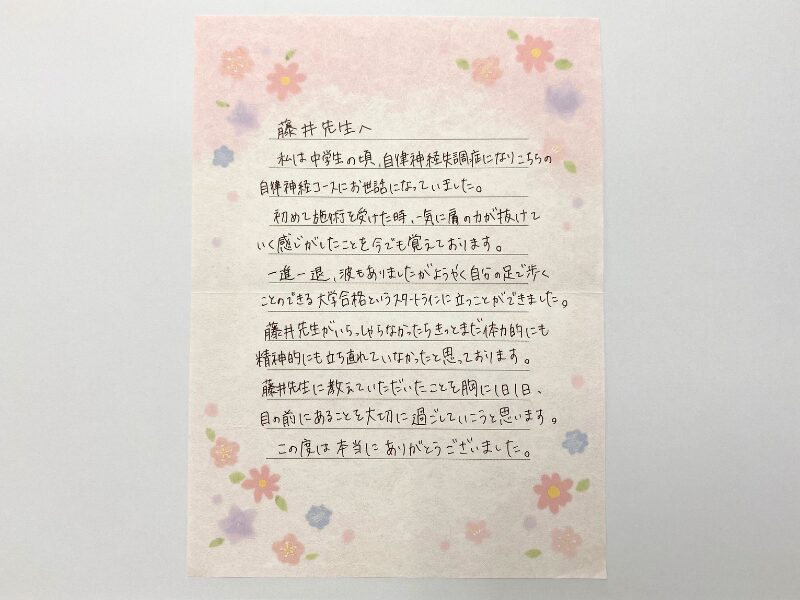 藤井先生へ
私は中学生の頃、自律神経失調症になりこちらの
自律神経コースにお世話になっていました。
初めて施術を受けた時、一気に肩の力が抜けて
いく感じがしたことを今でも覚えております。
一進一退、波もありましたがようやく自分の足で歩く
ことのできる大学合格というスタートラインに立つことができました。
藤井先生がいらっしゃらなかったらきっとまだ体力的にも
精神的にも立ち直れていなかったと思っております。
藤井先生に教えていただいたことを胸に1日1日、
目の前にあることを大切に過ごしていこうと思います。
この度は本当にありがとうございました。